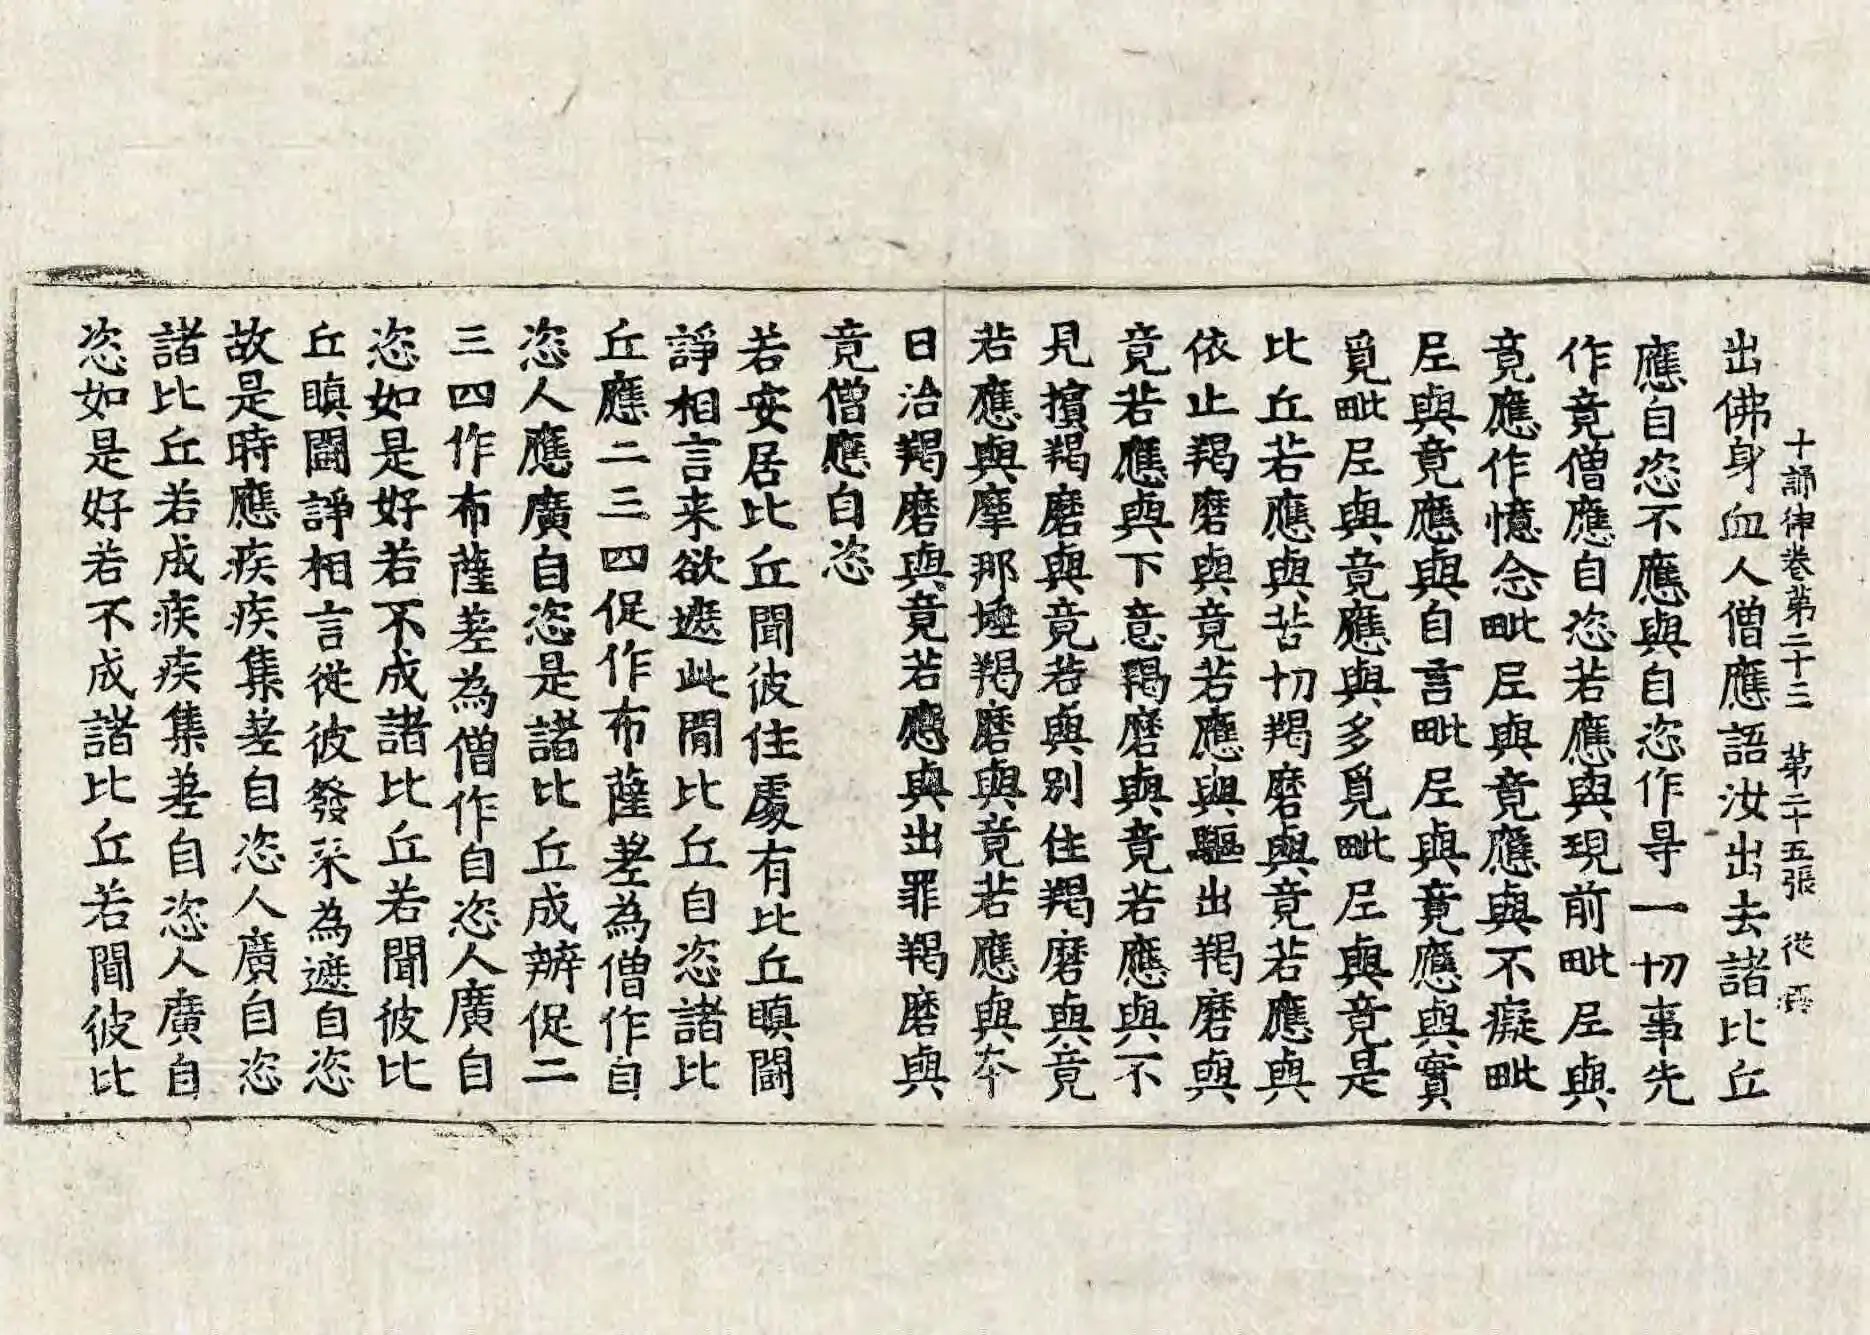 十誦律卷第二十三 第二十五張 從
出佛身血人僧應語汝出去諸比丘
應自恣不應與自恣作㝵一切事先
作竟僧應自恣若應與現前毗尼與
竟應作憶念毗尼與竟應與不癡毗
尼與竟應與自言毗尼與竟應與實
覓毗尼與竟應與多覓毗尼與竟是
比丘若應與苦切羯磨與竟若應與
依止羯磨與竟若應與驅出羯磨與
竟若應與下意羯磨與竟若應與不
見擯羯磨與竟若與別住羯磨與竟
若應與摩那埵羯磨與竟若應與本
日治羯磨與竟若應與出罪羯磨與
竟僧應自恣
若安居比丘聞彼住處有比丘瞋鬪
諍相言来欲遮此閒比丘自恣諸比
丘應二三四促作布薩差為僧作自
恣人應廣自恣是諸比丘成辦促二
三四作布薩差為僧作自恣人廣自
恣如是好若不成諸比丘若聞彼比
丘瞋鬪諍相言從彼發来為遮自恣
故是時應疾疾集差自恣人廣自恣
諸比丘若成疾疾集差自恣人廣自
恣如是好若不成諸比丘若聞彼比